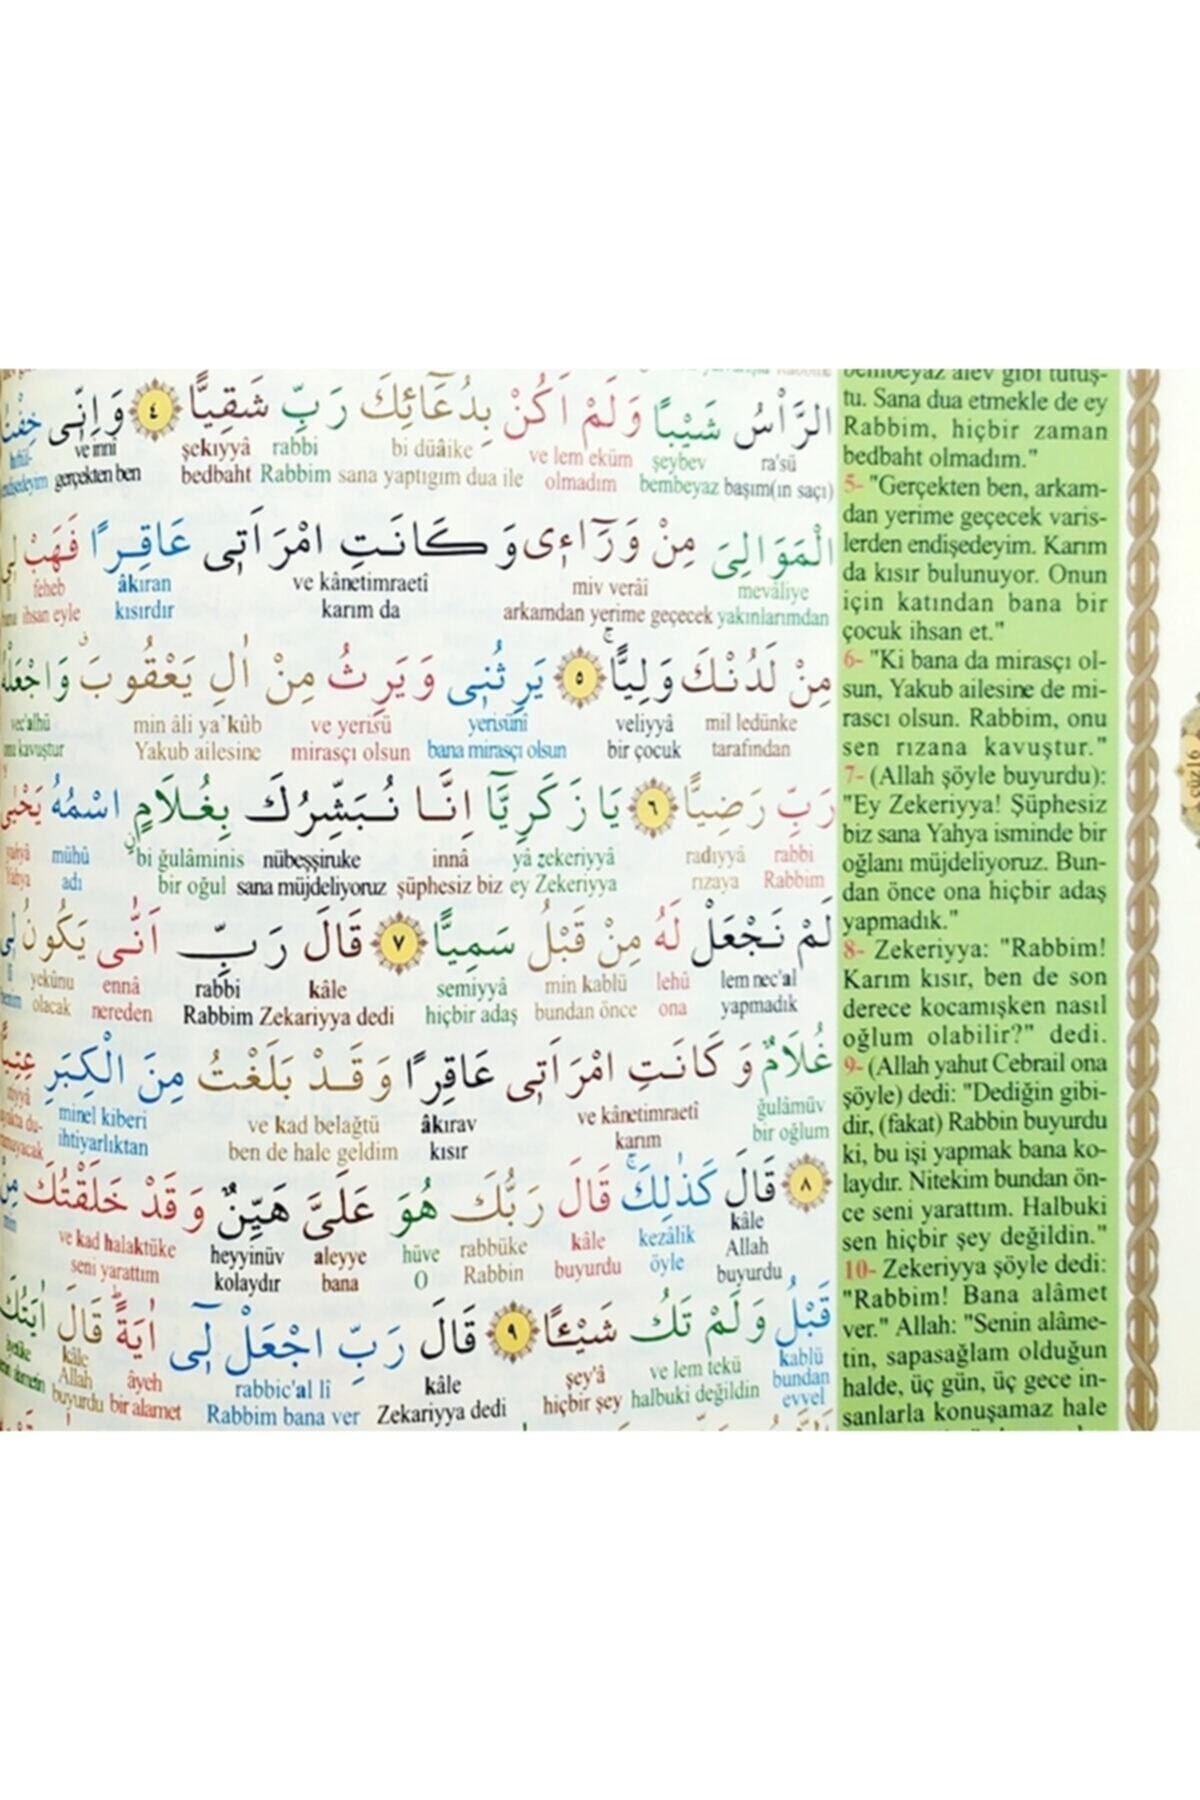 الرَّأْسُ شَيْبًا وَلَمْ اَكُنْ بِدُعَٓائِكَ رَبِّ شَقِيًّا ﴿٤﴾ وَاِنّ۪ي خِفْتُ
ra'sü şeybev ve lem eküm bi düâike rabbi şekıyyâ ve innî
başım(ın saçı) bembeyaz olmadım sana yaptığım dua ile Rabbim bedbaht gerçekten ben
الْمَوَالِيَ مِنْ وَرَٓاء۪ي وَكَانَتِ امْرَاَت۪ي عَاقِرًا فَهَبْ ل۪ي
mevâliye miv verâî ve kânetimraetî âkıran feheb
yakınlarımdan arkamdan yerime geçecek karım da kısırdır ihsan eyle
مِنْ لَدُنْكَ وَلِيًّا ﴿٥﴾ يَرِثُن۪ي وَيَرِثُ مِنْ اٰلِ يَعْقُوبَ وَاجْعَلْهُ
mil ledünke veliyyâ yerisünî ve yerisü min âli ya'kûb vec'alhü
tarafından bir çocuk bana mirasçı olsun mirasçı olsun Yakub ailesine onu kavuştur
رَبِّ رَضِيًّا ﴿٦﴾ يَا زَكَرِيَّٓا اِنَّا نُبَشِّرُكَ بِغُلَامٍ اسْمُهُ يَحْيٰى
rabbi radıyyâ yâ zekeriyyâ innâ nübeşşiruke bi ğulâminis mühû yahyâ
Rabbim rızaya ey Zekeriyya şüphesiz biz sana müjdeliyoruz bir oğul adı Yahya
لَمْ نَجْعَلْ لَهُ مِنْ قَبْلُ سَمِيًّا ﴿٧﴾ قَالَ رَبِّ اَنّٰى يَكُونُ ل۪ي
lem nec'al lehû min kablü semiyyâ kâle rabbi ennâ yekûnu lî
yapmadık ona bundan önce hiçbir adaş Zekariyya dedi Rabbim nereden olacak benim
غُلَامٌ وَكَانَتِ امْرَاَت۪ي عَاقِرًا وَقَدْ بَلَغْتُ مِنَ الْكِبَرِ عِتِيًّا
ğulâmüv ve kânetimraetî âkırav ve kad belağtü minel kiberi ıtiyyâ
bir oğlum karım kısır ben de hale geldim ihtiyarlıktan
﴿٨﴾ قَالَ كَذٰلِكَ قَالَ رَبُّكَ هُوَ عَلَيَّ هَيِّنٌ وَقَدْ خَلَقْتُكَ مِنْ
kâle kezâlik kâle rabbüke hüve aleyye heyyinüv ve kad halaktüke min
Allah buyurdu öyle buyurdu Rabbin O bana kolaydır seni yarattım
قَبْلُ وَلَمْ تَكُ شَيْـًٔا ﴿٩﴾ قَالَ رَبِّ اجْعَلْ ل۪ٓي اٰيَةً قَالَ اٰيَتُكَ
kablü ve lem tekü şey'â kâle rabbic'al lî âyeh kâle âyetüke
bundan evvel halbuki değildin hiçbir şey Zekariyya dedi Rabbim bana ver bir alamet Allah buyurdu
bembeyaz alev gibi tutuş-
tu. Sana dua etmekle de ey
Rabbim, hiçbir zaman
bedbaht olmadım."
5- "Gerçekten ben, arkam-
dan yerime geçecek varis-
lerden endişedeyim. Karım
da kısır bulunuyor. Onun
için katından bana bir
çocuk ihsan et."
6- "Ki bana da mirasçı ol-
sun, Yakub ailesine de mi-
rascı olsun. Rabbim, onu
sen rızana kavuştur."
7- (Allah şöyle buyurdu):
"Ey Zekeriyya! Şüphesiz
biz sana Yahya isminde bir
oğlanı müjdeliyoruz. Bun-
dan önce ona hiçbir adaş
yapmadık."
8- Zekeriyya: "Rabbim!
Karım kısır, ben de son
derece kocamışken nasıl
oğlum olabilir?" dedi.
9- (Allah yahut Cebrail ona
şöyle) dedi: "Dediğin gibi-
dir, (fakat) Rabbin buyurdu
ki, bu işi yapmak bana ko-
laydır. Nitekim bundan ön-
ce seni yarattım. Halbuki
sen hiçbir şey değildin."
10- Zekeriyya şöyle dedi:
"Rabbim! Bana alâmet
ver." Allah: "Senin alâme-
tin, sapasağlam olduğun
halde, üç gün, üç gece in-
sanlarla konuşamaz hale